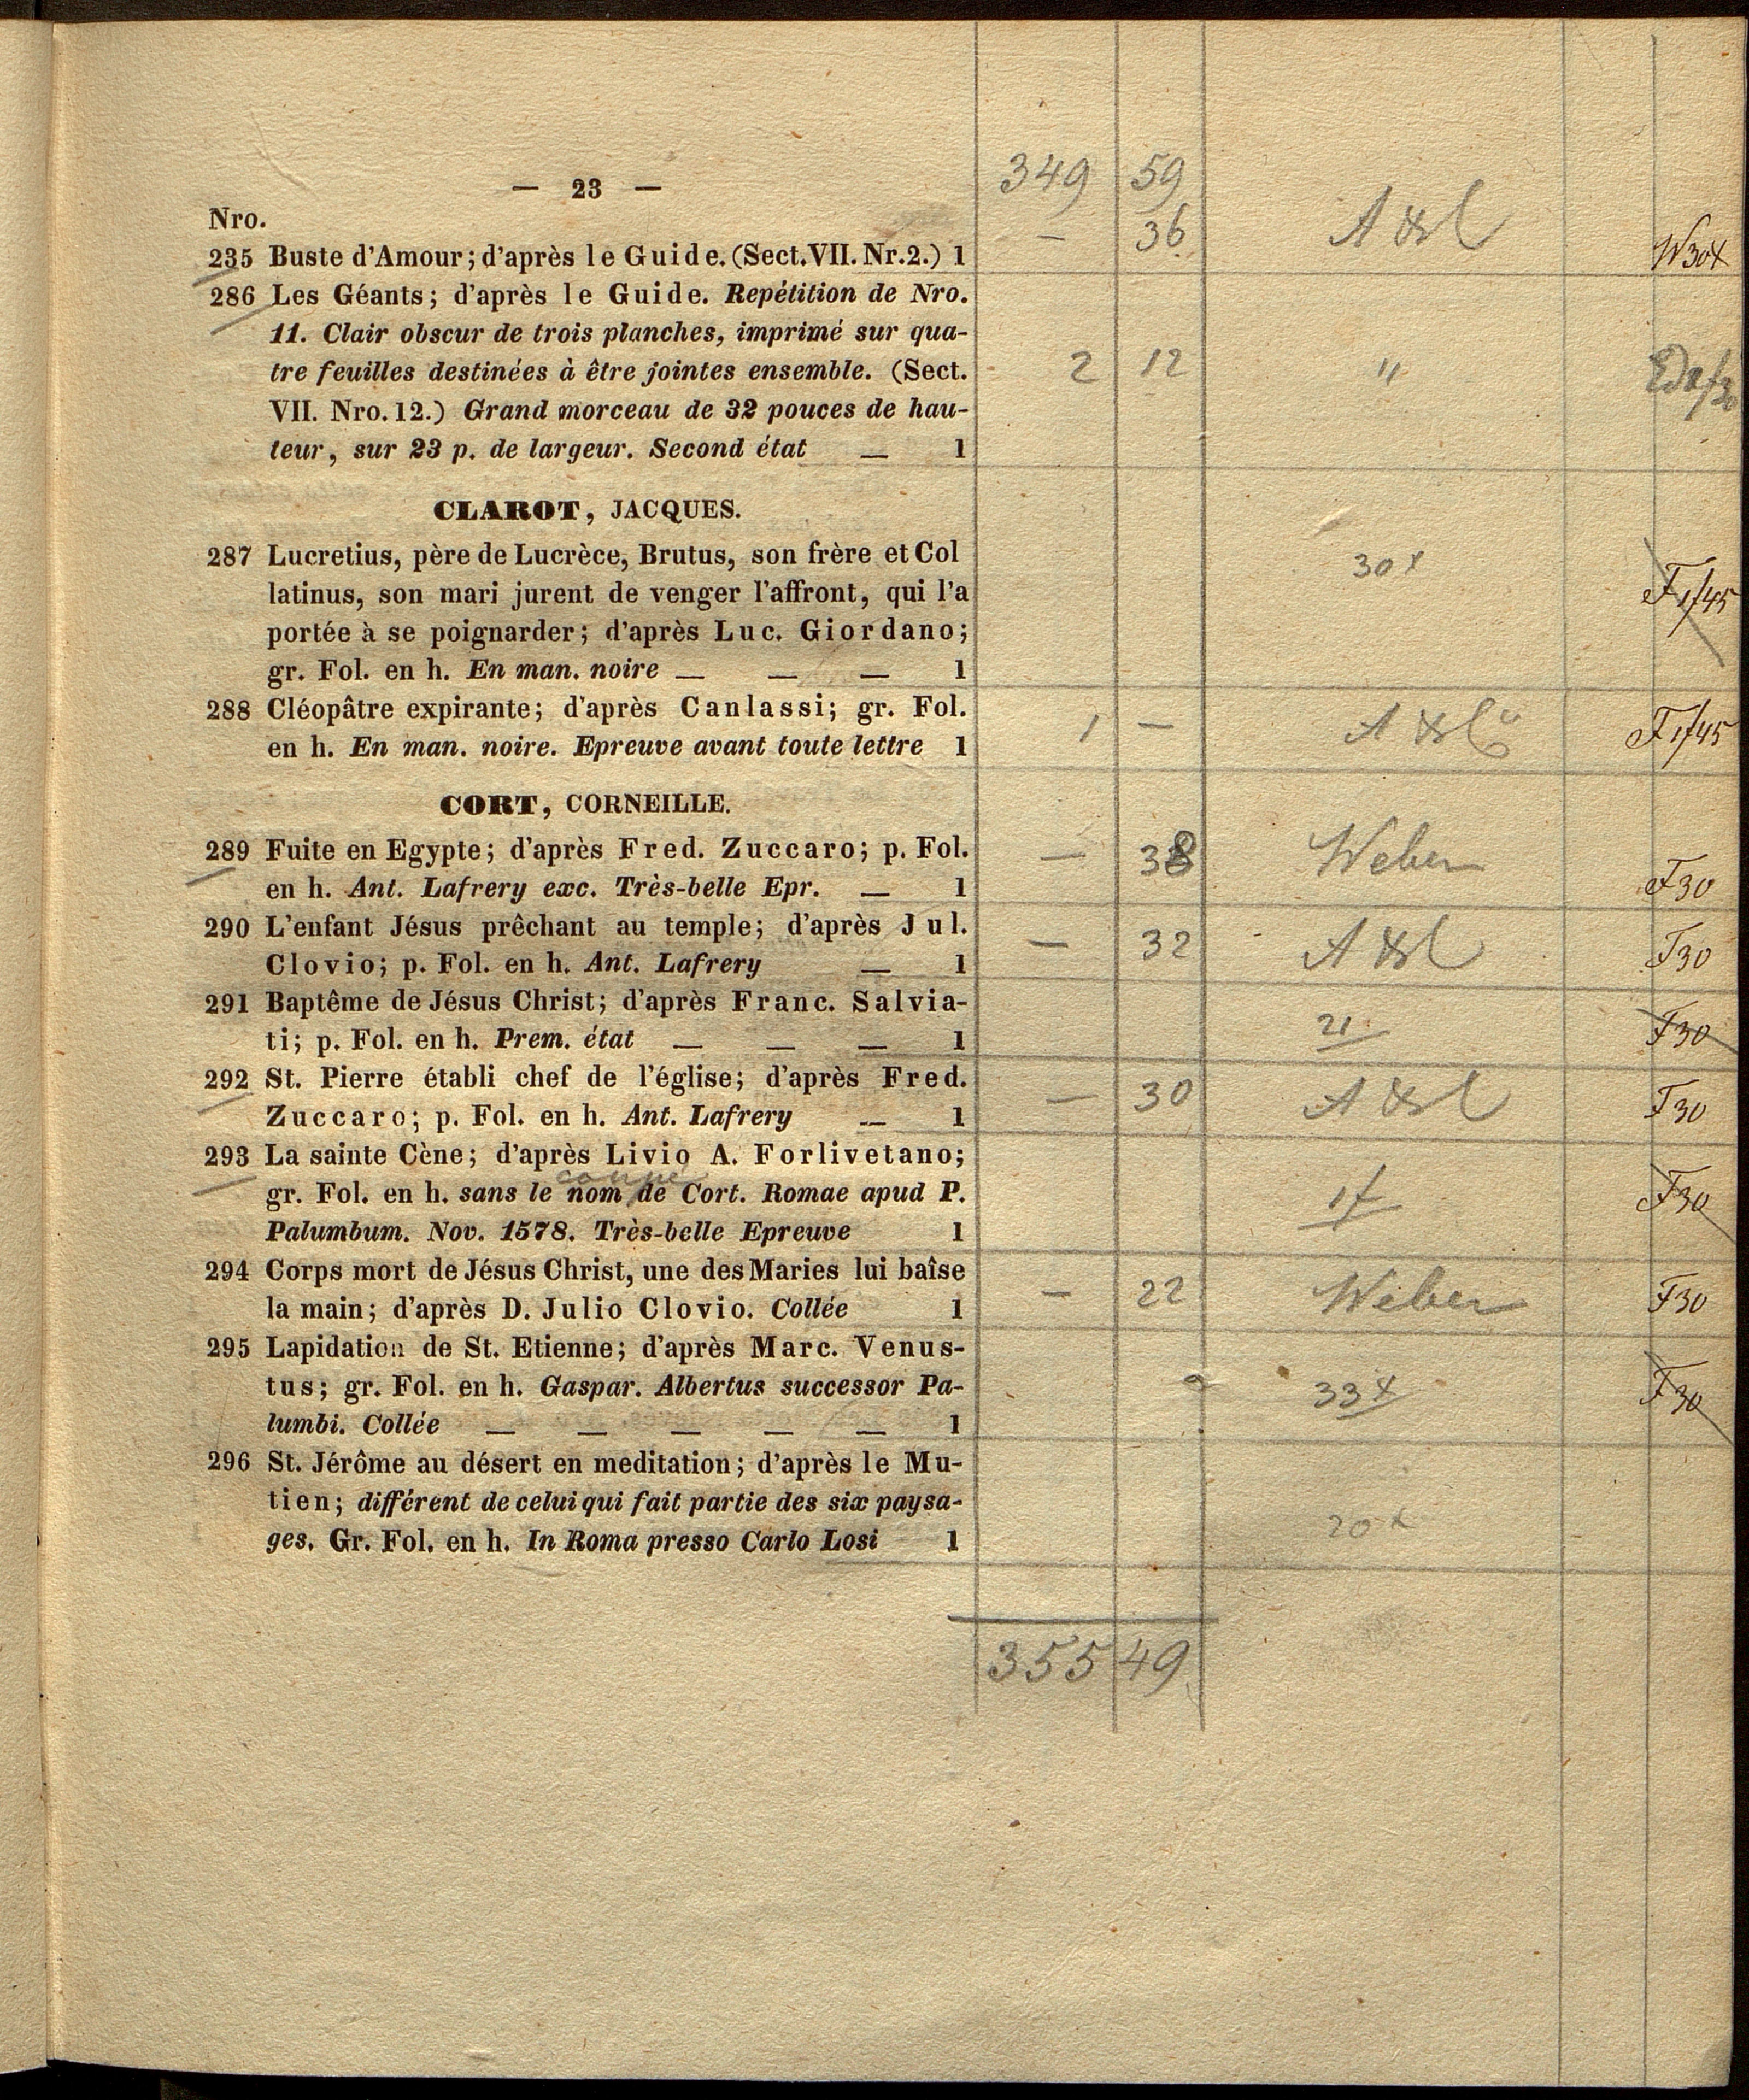 349 59
— 23 —
Nro.
235 Buste d'Amour; d'après le Guide. (Sect. VII. Nr. 2.) 1 — 36 W30x
286 Les Géants; d'après le Guide. Repétition de Nro.
11. Clair obscur de trois planches, imprimé sur qua-
tre feuilles destinées à être jointes ensemble. (Sect. 2 12 "
VII. Nro. 12.) Grand morceau de 32 pouces de hau-
teur, sur 23 p. de largeur. Second état — 1
CLAROT, JACQUES.
287 Lucretius, père de Lucrèce, Brutus, son frère et Col 30x
latinus, son mari jurent de venger l'affront, qui l'a F 1/45
portée à se poignarder; d'après Luc. Giordano;
gr. Fol. en h. En man. noire — — — 1
288 Cléopâtre expirante; d'après Canlassi; gr. Fol. 1 — F 1/45
en h. En man. noire. Epreuve avant toute lettre 1
CORT, CORNEILLE.
289 Fuite en Egypte; d'après Fred. Zuccaro; p. Fol. — 38 Weber
en h. Ant. Lafrery exc. Très-belle Epr. — 1 F30
290 L'enfant Jésus prêchant au temple; d'après Jul. — 32 F30
Clovio; p. Fol. en h. Ant. Lafrery — 1
291 Baptême de Jésus Christ; d'après Franc. Salvia- 21
ti; p. Fol. en h. Prem. état — — — 1 F30
292 St. Pierre établi chef de l'église; d'après Fred. — 30 F30
Zuccaro; p. Fol. en h. Ant. Lafrery — 1
293 La sainte Cène; d'après Livio A. Forlivetano;
coupé
gr. Fol. en h. sans le nom de Cort. Romae apud P. 1f F30
Palumbum. Nov. 1578. Très-belle Epreuve 1
294 Corps mort de Jésus Christ, une des Maries lui baîse — 22 Weber F30
la main; d'après D. Julio Clovio. Collée 1
295 Lapidation de St. Etienne; d'après Marc. Venus-
tus; gr. Fol. en h. Gaspar. Albertus successor Pa- 33x F30
lumbi. Collée — — — — — 1
296 St. Jérôme au désert en meditation; d'après le Mu-
tien; différent de celui qui fait partie des six paysa-
ges. Gr. Fol. en h. In Roma presso Carlo Losi 1 20x
355 49